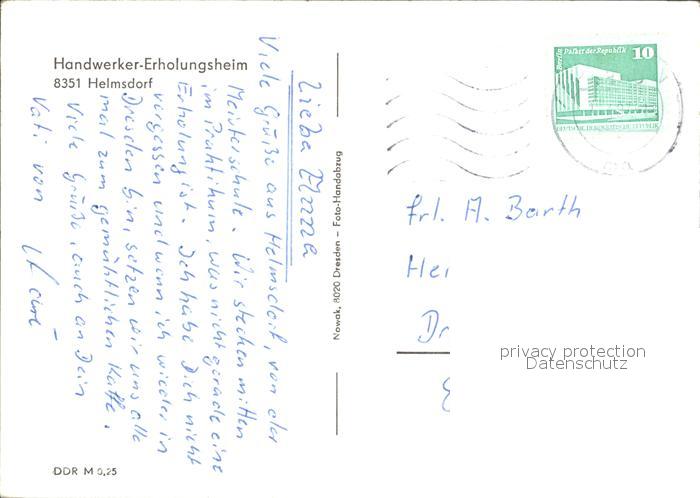 Handwerker-Erholungsheim
8351 Helmsdorf
Liebe Anna
Viele Grüße aus Helmsdorf, von der
Meisterschule. Wir stecken mitten
im Praktikum, was nicht gerade eine
Erholung ist. Ich habe Dich nicht
vergessen und wenn ich wieder in
Dresden bin, setzen wir uns alle
mal zum gemühtlichen Kaffe.
Viele Grüße, auch an Dein
Vati von
DDR M 0,25
Nowak, 8020 Dresden – Foto-Handabzug
Berlin Palast der Republik 10
DEUTSCHE DEMOKRATISCHE REPUBLIK
Frl. A. Barth
Hei
Dr
privacy protection
Datenschutz